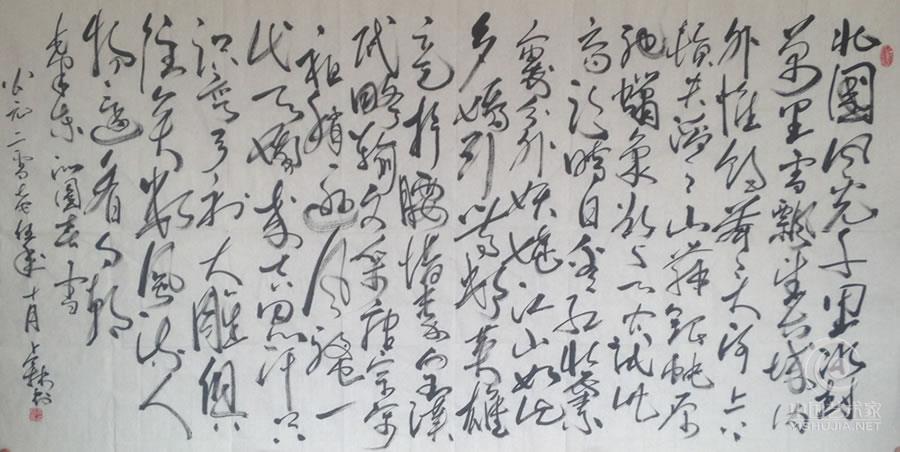 北國风光千里冰封
萬里雪飄望长城内
外惟餘莽々大河上下
頓失滔々山舞銀蛇原
馳蠟象欲与天公試比
高须晴日看红装素
裹分外妖娆江山如此
多嬌引無数英雄
竞折腰惜秦皇漢
武略輸文采唐宗宋
祖稍逊风骚一
代天驕成吉思汗只
识弯弓射大雕俱
往矣数風流人
物還看今朝
毛泽东沁園春雪
公元二零 年十月
YISHUJIA.NET